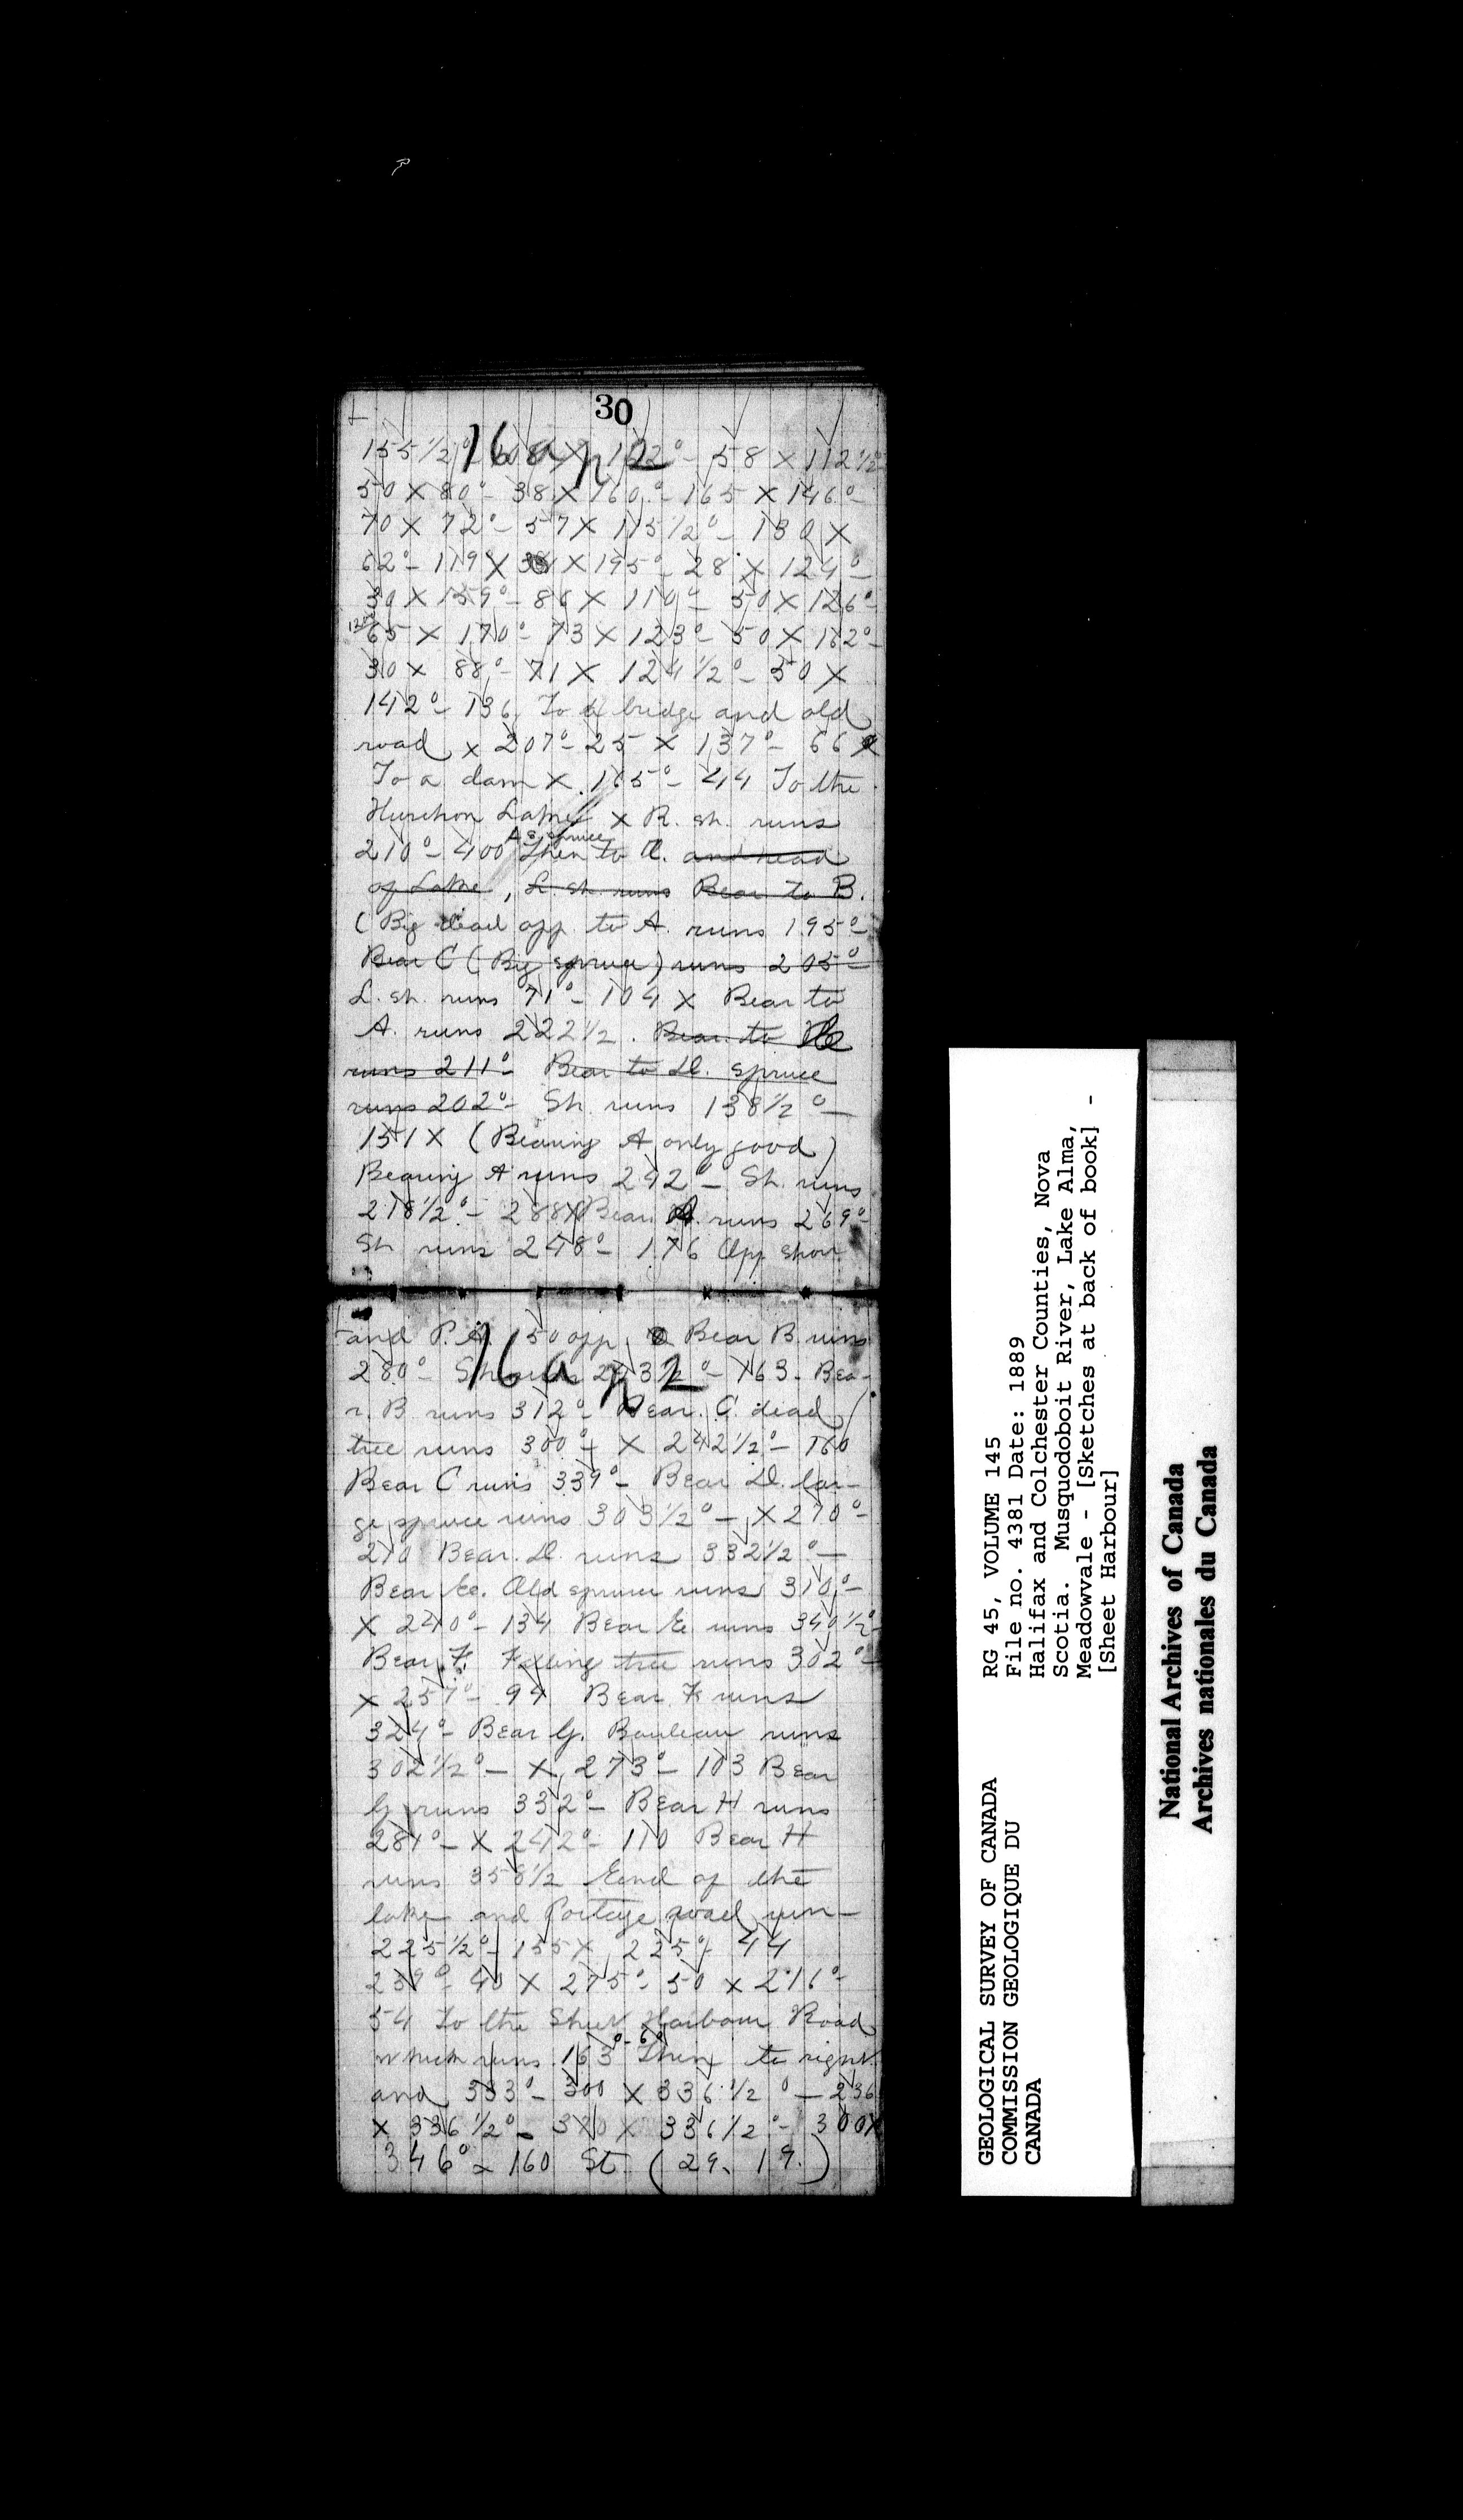 30
16 a p 2
155 1/2° 608 X 132° - 58 X 112 1/2
50 X 80° - 38 X 160° - 165 X 146° -
70 X 72° - 57 X 115 1/2° - 130 X
62° - 119 X X 195° - 28 X 124° -
30 X 159° - 86 X 110° - 50 X 126° -
65 X 170° - 73 X 123° - 50 X 162° -
30 X 88° - 71 X 124 1/2° - 50 X
142° - 136 To a bridge and old
road X 207° - 25 X 137° - 66 X
To a dam X 165° - 44 To the
Lake X R. sh. runs
A S. spruce
210° - 400 Then to and head
of Lake, L. sh. runs Bear to B.
(Big dead opp. to A. runs 195° -
Bear C (Big spruce) runs 205° -
L. sh. runs 71° - 104 X Bear to
A. runs 222 1/2. Bear to
runs 211° - Bear to D. spruce
runs 202° - Sh. runs 138 1/2° -
151 X (Bearing A only good)
Bearing A runs 242° - Sh. runs
218 1/2° - 288 X Bear A. runs 269° -
Sh runs 248° - 176 Opp shor
and P. A. 50 opp. Bear B. runs
16 a p 2
280° - Sh runs - 163 - Bea-
r. B runs 312° - Bear. C. dead
tree runs 300° - X 242 1/2° - 160
Bear C runs 339° - Bear D. lar-
ge spruce runs 303 1/2° - X 270° -
210 Bear. D. runs 332 1/2° -
Bear E. Old spruce runs 310° -
X 240° - 134 Bear E. runs 340 1/2° -
Bear F. Falling tree runs 302° -
X 257° - 94 Bear F runs
324° - Bear G. Bouleau runs
302 1/2° - X 273° - 103 Bear
G runs 332° - Bear H runs
281° - X 242° - 110 Bear H
runs 358 1/2 End of the
lake and Portage road run-
225 1/2° - 155 X 225° - 44
239° - 40 X 275° - 50 X 216° -
54 To the Sheet Harbour Road
which runs 163° - 60 Then to right
and 333° - 300 X 336 1/2° - 236
X 336 1/2° - 320 X 336 1/2° - 300 X
346° - 160 St. (29. 19.)
GEOLOGICAL SURVEY OF CANADA
COMMISSION GEOLOGIQUE DU
CANADA
RG 45, VOLUME 145
File no. 4381 Date: 1889
Halifax and Colchester Counties, Nova
Scotia. Musquodoboit River, Lake Alma,
Meadowvale - [Sketches at back of book] -
[Sheet Harbour]
National Archives of Canada
Archives nationales du Canada